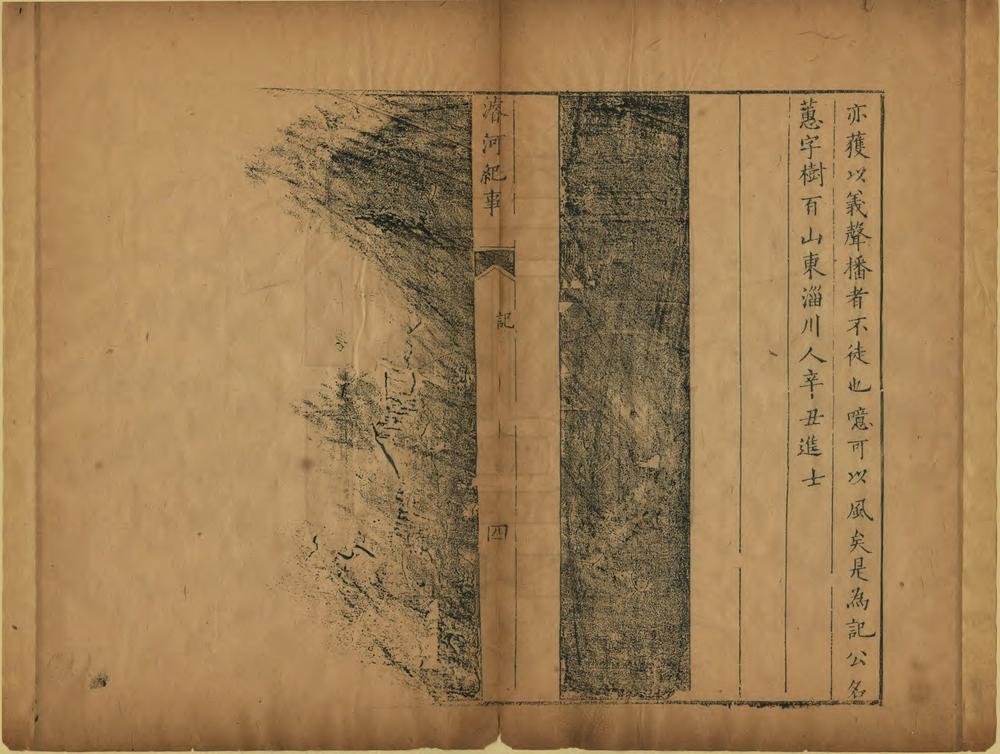 亦獲以義聲播者不徒也噫可以風矣是為記公名
蕙字樹百山東淄川人辛丑進士
濬河紀事
記
四